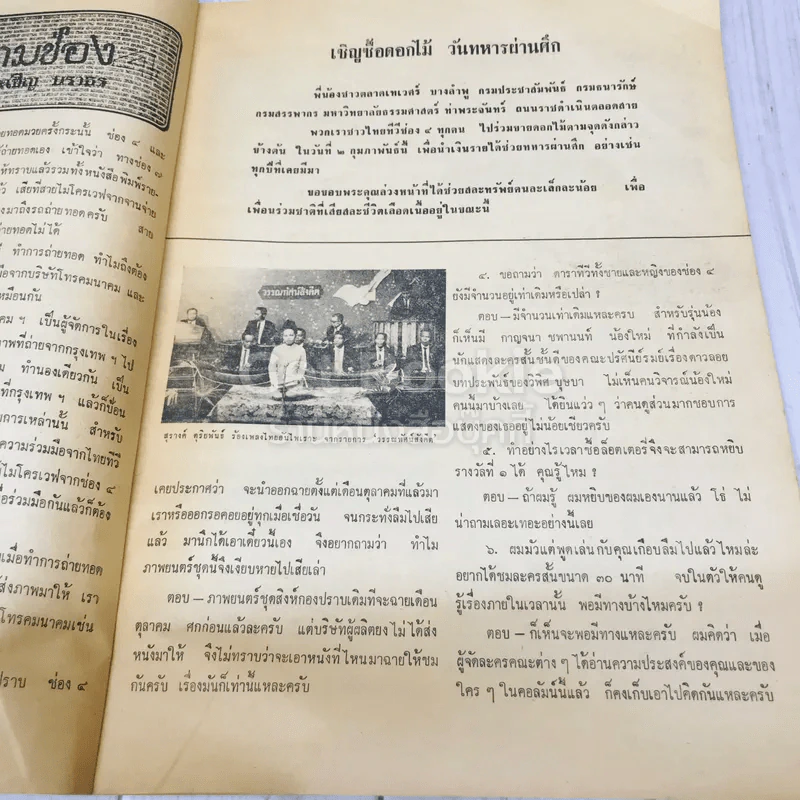 ามช่อง
เชิญ บรวธร
ายทอดมวยครั้งกระนั้น ช่อง ๔ และ
ถ่ายทอดเอง เข้าใจว่า ทางช่อง ๗
ห้ทราบแล้วรวมทั้งหนังสือพิมพ์ราย-
ว เสียที่สายไมโครเวฟจากจานจ่าย
งมาถึงรถถ่ายทอดครับ สาย
ายทอดไม่ได้
ทำการถ่ายทอด ทำไมถึงต้อง
มือจากบริษัทโทรคมนาคม และ
เหมือนกัน
คม ฯ เป็นผู้จัดการในเรื่อง
ภาพที่ถ่ายจากกรุงเทพ ฯ ไป
ม ทำนองเดียวกัน เป็น
ที่กรุงเทพ ฯ แล้วก็ป้อน
การเหล่านั้น สำหรับ
ความร่วมมือจากไทยทีวี
ไมโครเวฟจากช่อง ๔
ื่อร่วมมือกันแล้วก็ต้อง
เมื่อทำการถ่ายทอด
ส่งภาพมาให้ เรา
โทรคมนาคมเช่น
ปราบ ช่อง ๔
เชิญซื้อดอกไม้ วันทหารผ่านศึก
พี่น้องชาวตลาดเทเวศร์ บางลำพู กรมประชาสัมพันธ์ กรมธนารักษ์
กรมสรรพากร มหาวิทยาลัยธรรมศาสตร์ ท่าพระจันทร์ ถนนราชดำเนินตลอดสาย
พวกเราชาวไทยทีวีช่อง ๔ ทุกคน ไปร่วมขายดอกไม้ตามจุดดังกล่าว
บ้างต้น ในวันที่ ๒ กุมภาพันธ์นี้ เพื่อนำเงินรายได้ช่วยทหารผ่านศึก อย่างเช่น
ทุกปีที่เคยมีมา
ขอขอบพระคุณล่วงหน้าที่ได้ช่วยสละทรัพย์คนละเล็กละน้อย เพื่อ
เพื่อนร่วมชาติที่เสียสละชีวิตเลือดเนื้ออยู่ในขณะนี้
วรรณทัศน์สังคีต
สุรางค์ ดุริยพันธ์ ร้องเพลงไทยอันไพเราะ จากรายการ "วรรณทัศน์สังคีต"
เคยประกาศว่า จะนำออกฉายตั้งแต่เดือนตุลาคมที่แล้วมา
เราหรือออกรอคอยอยู่ทุกเมื่อเชื่อวัน จนกระทั่งลืมไปเสีย
แล้ว มานึกได้เอาเดี๋ยวนี้เอง จึงอยากถามว่า ทำไม
ภาพยนตร์ชุดนี้จึงเงียบหายไปเสียเล่า
ตอบ – ภาพยนตร์ชุดสิงห์กองปราบเดิมทีจะฉายเดือน
ตุลาคม ศกก่อนแล้วละครับ แต่บริษัทผู้ผลิตยังไม่ได้ส่ง
หนังมาให้ จึงไม่ทราบว่าจะเอาหนังที่ไหนมาฉายให้ชม
กันครับ เรื่องมันก็เท่านี้แหละครับ
๔. ขอถามว่า ดาราทีวีทั้งชายและหญิงของช่อง ๔
ยังมีจำนวนอยู่เท่าเดิมหรือเปล่า ?
ตอบ–มีจำนวนเท่าเดิมแหละครบ สำหรับรุ่นน้อง
ก็เห็นมี กาญจนา ชพานนท์ น้องใหม่ ที่กำลังเป็น
นักแสดงละครสั้นชั้นดีของคณะปรัศนีย์รมย์เรื่องดาวลอย
บทประพันธ์ของวิพิศ บุษบา ไม่เห็นคนวิจารณ์น้องใหม่
คนนี้มาบ้างเลย ได้ยินแว่ว ๆ ว่าคนดูส่วนมากชอบการ
แสดงของเธออยู่ไม่น้อยเชียวครับ
๕. ทำอย่างไรเวลาซื้อล็อตเตอรี่จึงจะสามารถหยิบ
รางวัลที่ ๑ ได้ คุณรู้ไหม ?
ตอบ–ถ้าผมรู้ ผมหยิบของผมเองนานแล้ว โธ่ ไม่
น่าถามเลอะเทอะอย่างนี้เลย
๖. ผมมัวแต่พูดเล่นกับคุณเกือบลืมไปแล้วไหมล่ะ
อยากได้ชมละครสั้นขนาด ๓๐ นาที จบในตัวให้คนดู
รู้เรื่องภายในเวลานั้น พอมีทางบ้างไหมครับ ?
ตอบ–ก็เห็นจะพอมีทางแหละครับ ผมคิดว่า เมื่อ
ผู้จัดละครคณะต่าง ๆ ได้อ่านความประสงค์ของคุณและของ
ใคร ๆ ในคอลัมน์นี้แล้ว ก็คงเก็บเอาไปคิดกันแหละครับ